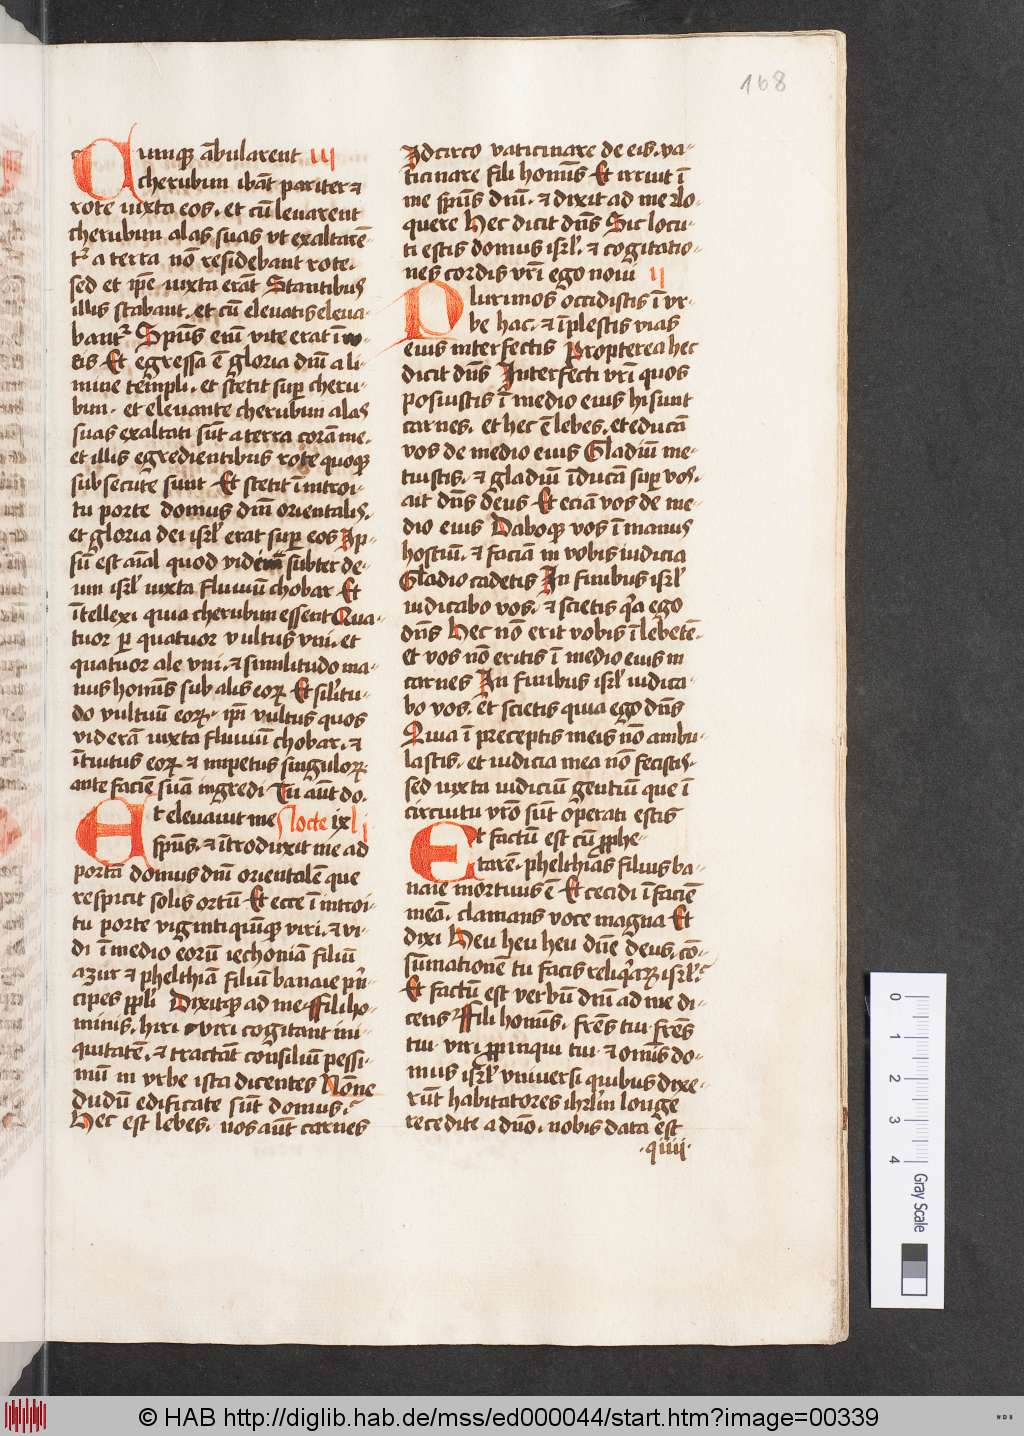 168
Cumqꝫ ābularent III
cherubin ibāt pariter ⁊
rote iuxta eos. et cū leuarent
cherubin alas suas vt exaltarē-
tᷣ a terra nō residebant rote.
sed et ip̄e iuxta erāt Stantibus
illis stabant. et cū eleuatis eleua-
bantᷣ Spūs em̄ vite erat ī ro-
tis Et egressa ē gloria dnī a li-
mine templi. et stetit sup cheru-
bin. et eleuante cherubin alas
suas exaltati sūt a terra corā me.
et illis egredientibus rote quoqꝫ
subsecute sunt Et stetit ī introi-
tu porte domus dnī orientalis.
et gloria dei isrl̄ erat sup eos Ip-
sū est aīal quod vidi subter de-
um isrl̄ iuxta fluuiū chobar Et
ītellexi quia cherubin essent Qua-
tuor p quatuor vultus vni. et
quatuor ale vni. ⁊ similitudo ma-
nus homīs sub alis eoꝝ Et sili̅tu-
do vultuū eoꝝ. ip̄i vultus quos
viderā iuxta fluuiū chobar. ⁊
ītuitus eoꝝ ⁊ impetus singuloꝝ
ante faciē suā ingredi Tu aūt do.
Et eleuauit me Nocte ix I
spūs. ⁊ ītroduxit me ad
portā domus dnī orientalē que
respicit solis ortū Et ecce ī introi-
tu porte viginti quīqꝫ viri. ⁊ vi-
di ī medio eorū iechoniā filiū
azur ⁊ phelthiā filiū banaie pn̄-
cipes ppl̄i Dixitqꝫ ad me ffili ho-
minis. hiri viri cogitant ini-
quitatē. ⁊ tractāt consiliū pessi-
mū in vrbe ista dicentes Nōne
dudū edificate sūt domus.
Hec est lebes. nos aūt carnes
Idcirco vaticinare de eis. va-
ticinare fili homīs Et irruit ī
me spūs dnī. ⁊ dixit ad me ⁊ lo-
quere Hec dicit dn̄s Sic locu-
ti estis domus isrl̄. ⁊ cogitatio-
nes cordis vrī ego noui II
Plurimos occidistis ī vr-
be hac. ⁊ īplestis vias
eius interfectis Propterea hec
dicit dn̄s Interfecti vrī quos
posuistis ī medio eius hi sunt
carnes. et hec ē lebes. et educā
vos de medio eius Gladiū me-
tuistis. ⁊ gladiū īducā sup vos.
ait dn̄s deus Et eciā vos de me-
dio eius Daboqꝫ vos ī manus
hostiū. ⁊ faciā in vobis iudicia
Gladio cadetis In finibus isrl̄
iudicabo vos. ⁊ scietis q̄a ego
dn̄s Hec nō erit vobis ī lebetē.
et vos nō eritis ī medio eius in
carnes In finibus isrl̄ iudica-
bo vos. et scietis quia ego dn̄s
Quia ī preceptis meis nō ambu-
lastis. et iudicia mea nō fecistis.
sed iuxta iudiciū gentiū que ī
circuitu vrō sūt operati estis
Et factū est cū ꝓphe-
tarē. phelthias filius ba-
naie mortuus ē Et cecidi ī faciē
meā. clamans voce magna Et
dixi Heu heu heu dn̄e deus. cō-
sūmationē tu facis reliq̄aꝝ isrl̄.
Et factū est verbū dnī ad me di-
cens ffili homīs. frēs tui frēs
tui. viri ꝓpinqui tui ⁊ omīs do-
mus isrl̄ vniuersi quibus dixe-
rūt habitatores ihrl̄m longe
recedite a dn̄o. nobis data est
.qiiii.
0 1 2 3 4 Gray Scale
© HAB http://diglib.hab.de/mss/ed000044/start.htm?image=00339